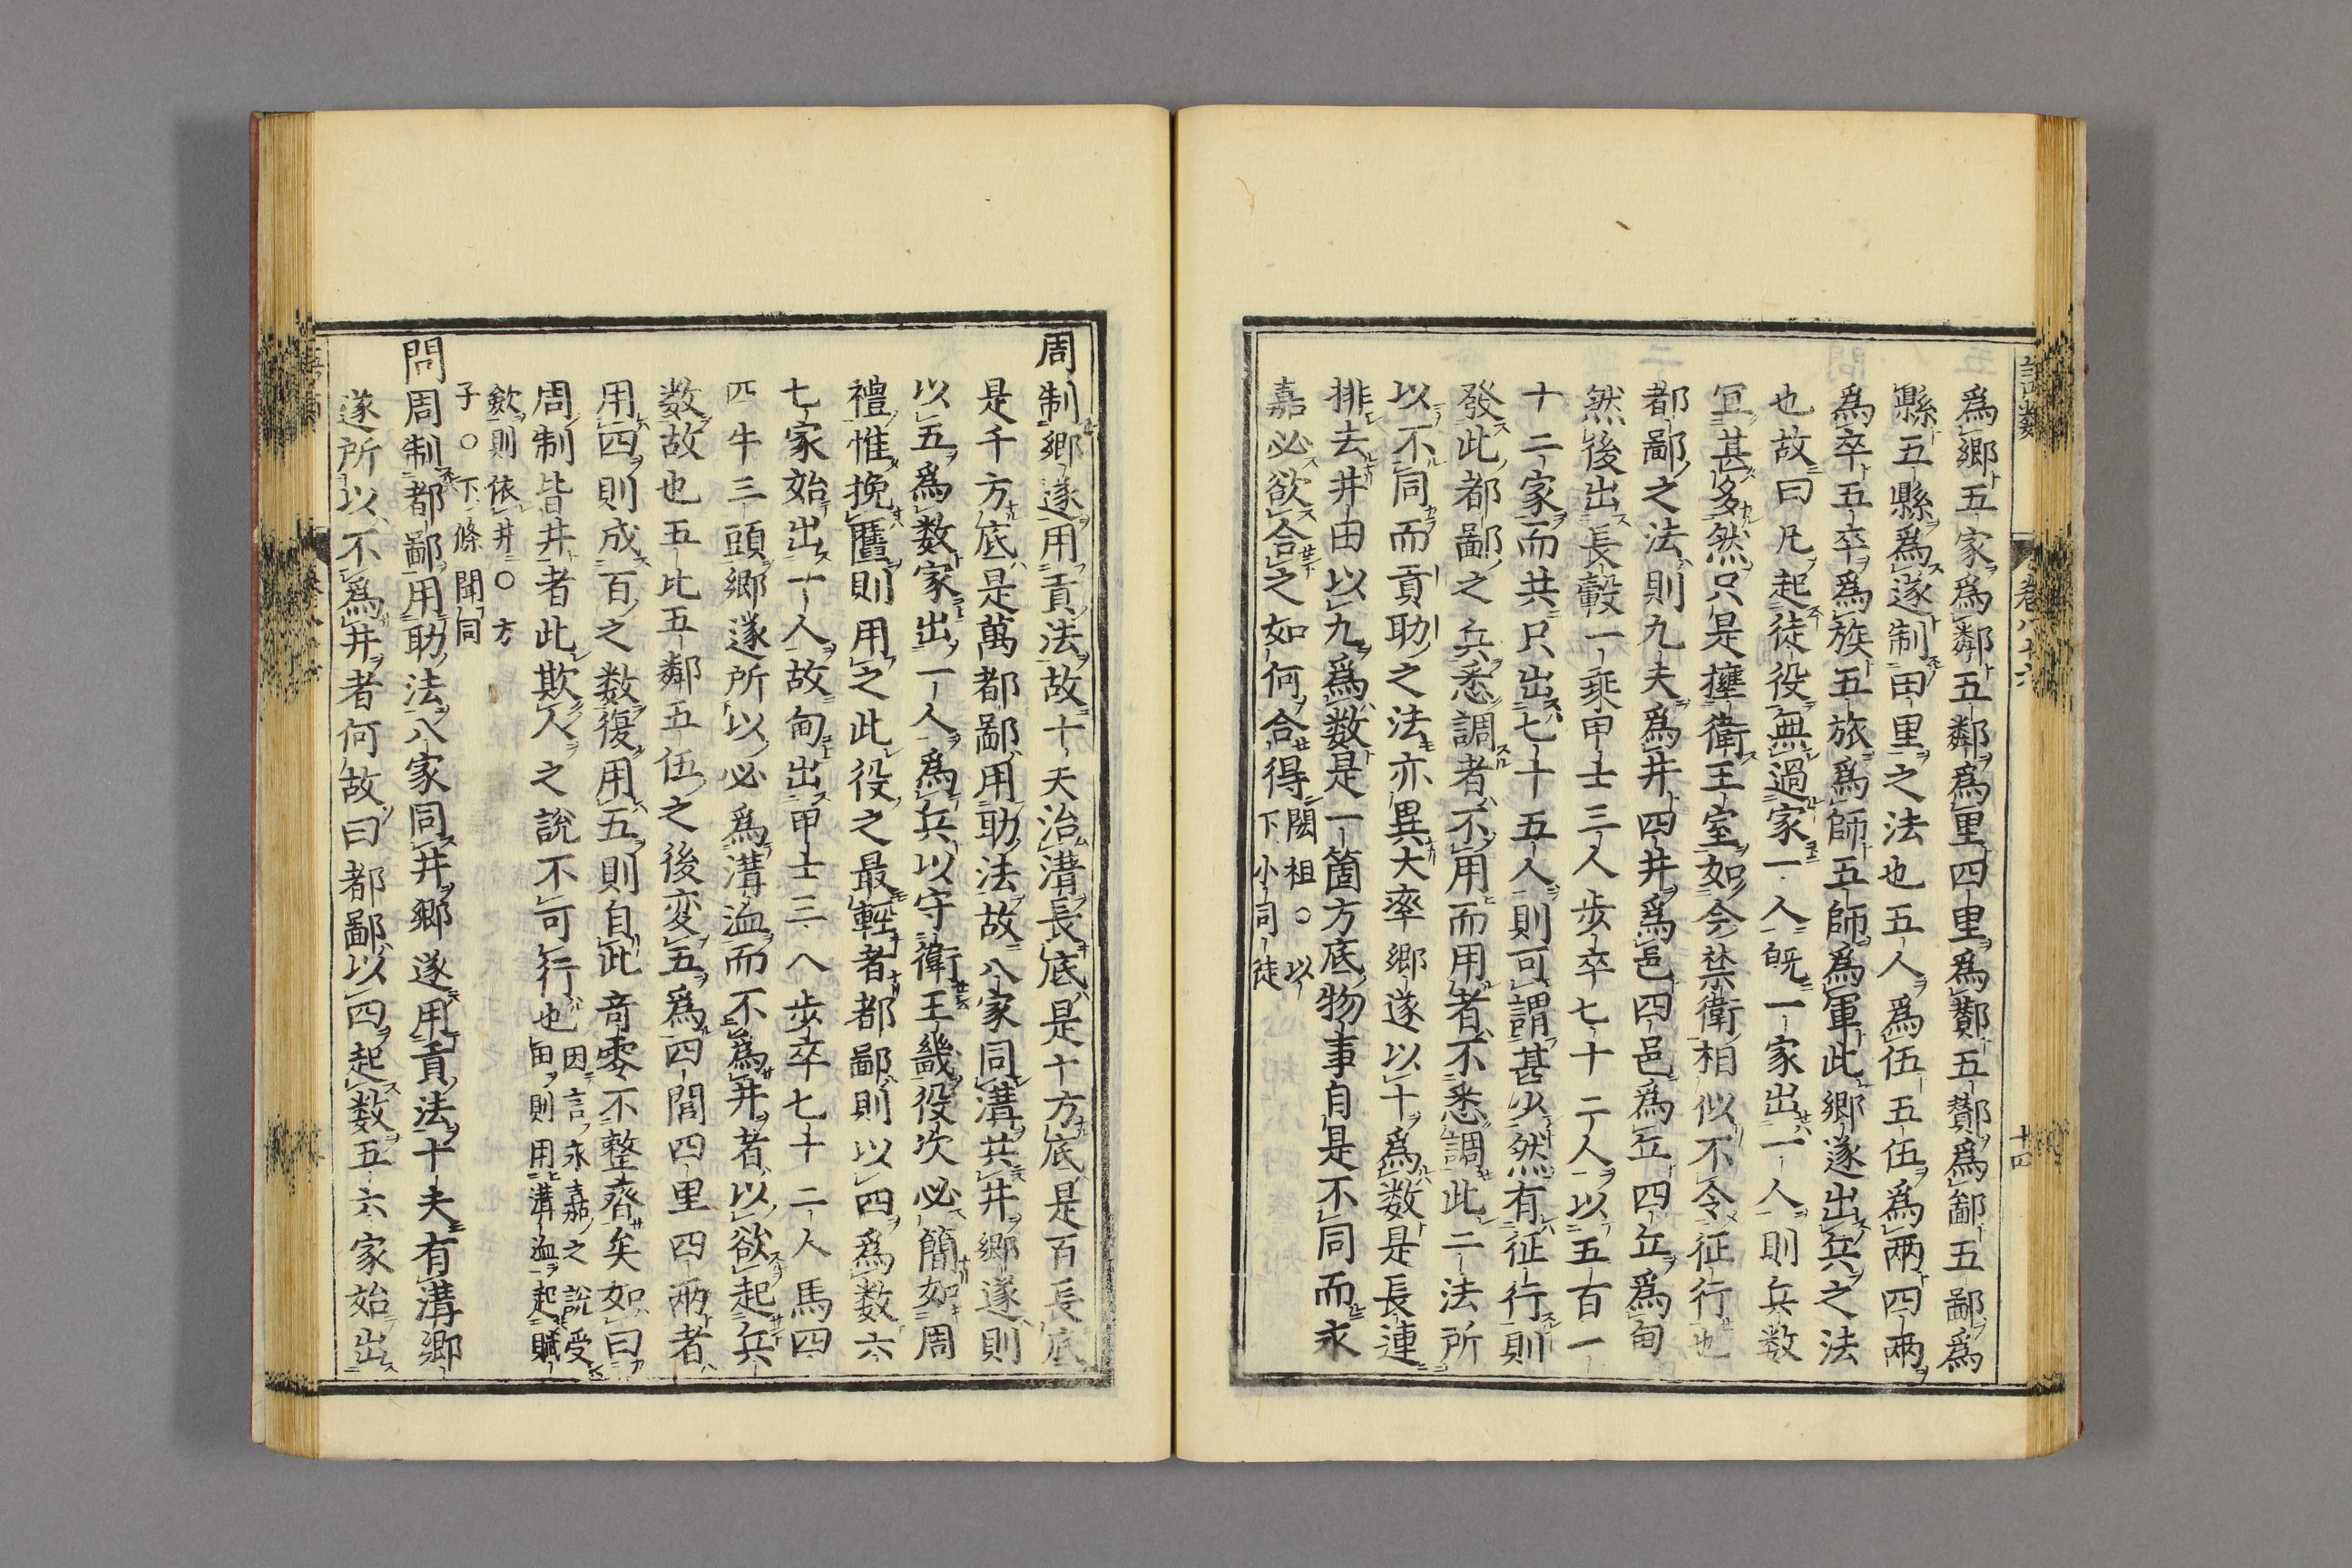 爲鄉五家爲鄰五鄰爲里四里爲酇五酇爲鄙五鄙爲
縣五縣爲遂制田里之法也五人爲伍五伍爲两四两
爲卒五卒爲旅五旅爲師五師爲軍此鄉遂出兵之法
也故曰凡起徒役無過家一人既一家出一人則兵数
冝甚多然只是擁衛王室如今禁衛相似不令征行也
都鄙之法則九夫爲井四井爲邑四邑爲丘四丘爲甸
然後出長轂一乘甲士三人歩卒七十二人以五百一
十二家而共只出七十五人則可謂甚少然有征行則
發此都鄙之兵悉調者不用而用者不悉調此二法所
以不同而貢助之法亦異大率鄉遂以十爲数是長連
排去井田以九爲数是一箇方底物事自是不同而永
嘉必欲合之如何合得閎祖○以
下小同徒
周制鄉遂用貢法故十夫治溝長底是十方底是百長底
是千方底是萬都鄙用助法故八家同溝共井鄉遂則
以五爲数家出一人爲兵以守衛王畿役次必簡如周
禮惟挽匶則用之此役之最輕者都鄙則以四爲数六
七家始出一人故甸出甲士三人歩卒七十二人馬四
匹牛三頭鄉遂所以必爲溝洫而不爲井者以欲起兵
数故也五比五鄰五伍之後変五爲四閭四里四两者
用四則成百之数復用五則自此竒零不整齊矣如曰
周制皆井者此欺人之說不可行也因言永嘉之說受
田則用溝洫起賦
歛則依井○方
子○下條聞同
問周制都鄙用助法八家同井鄉遂用貢法十夫有溝鄉
遂所以不爲井者何故曰都鄙以四起数五六家始出
語類
卷八十六
十四